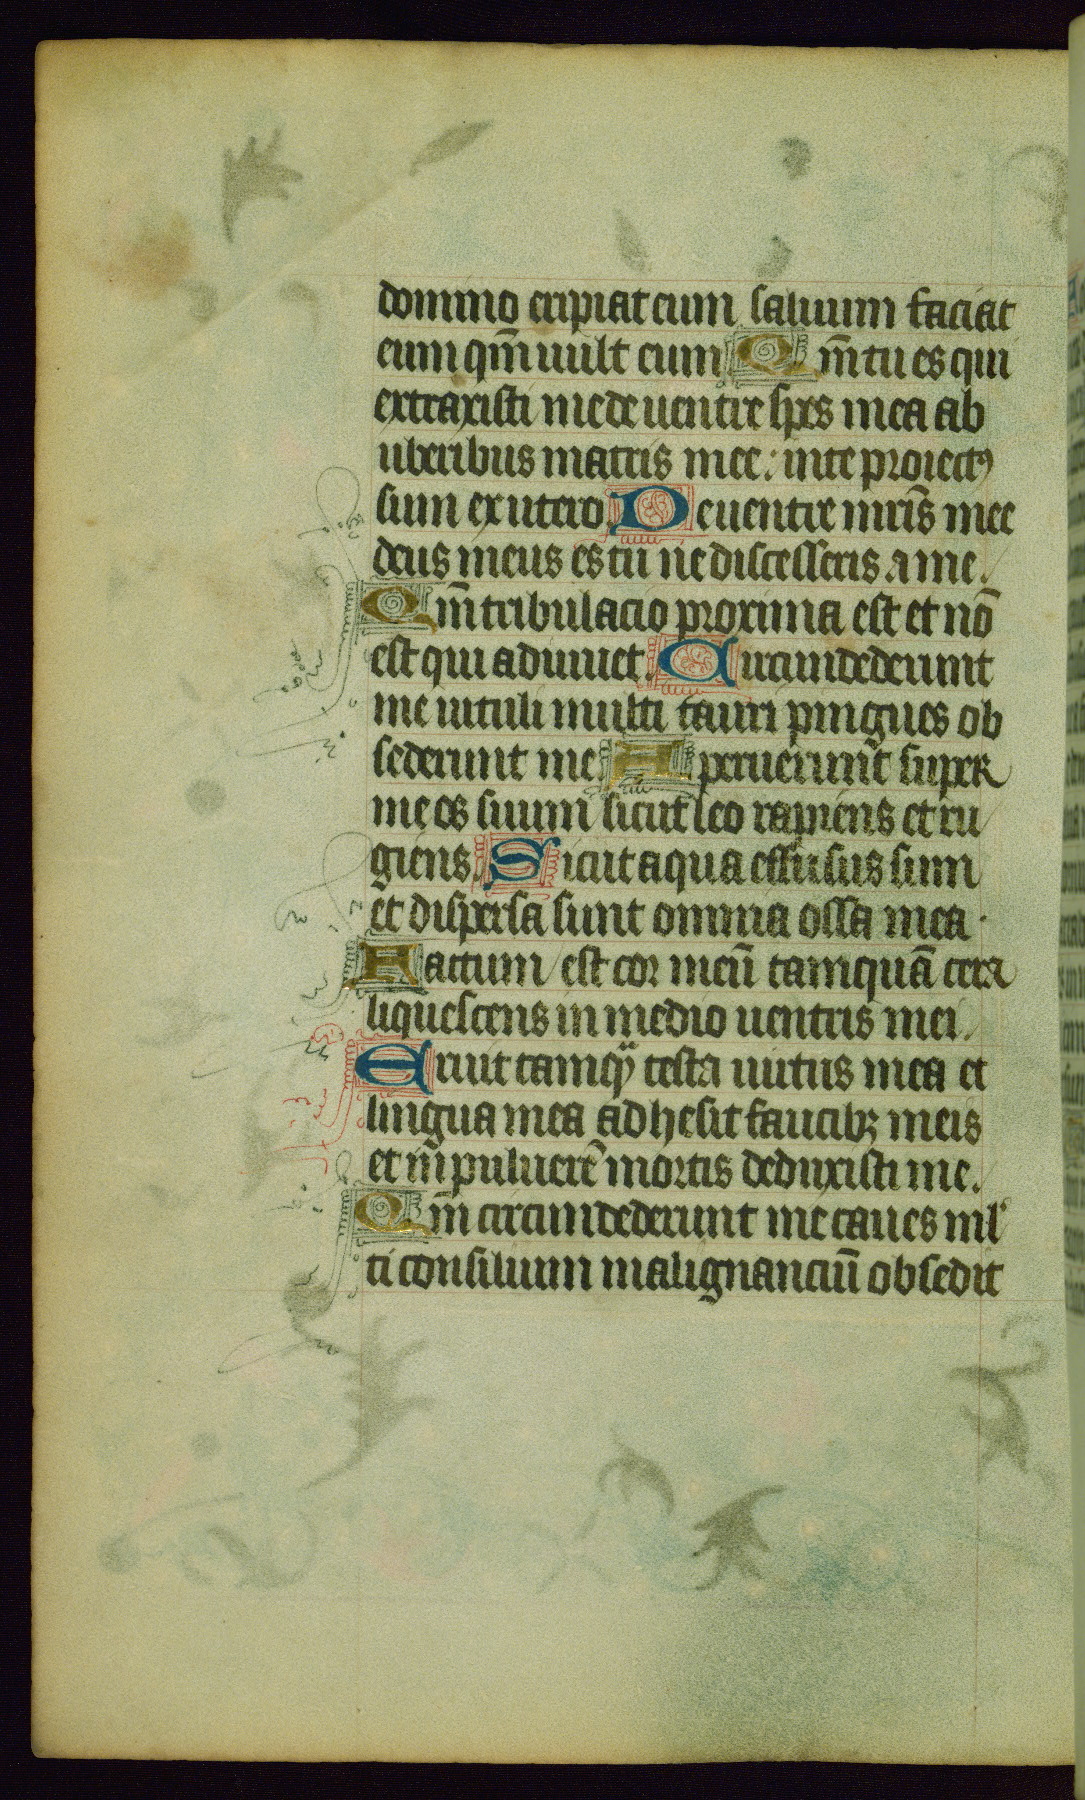 domino eripiat eum saluum faciat
eum qm̄ uult eum Qm̄ tu es qui
extraxisti me de uentre spes mea ab
uberibus matris mee: in te proiectꝰ
sum ex utero. De uentre mr̄is mee
deus meus es tu ne discesseris a me.
Qm̄ tribulacio proxima est et nō
est qui adiuuet. Circumdederunt
me uituli multi tauri pingues ob
sederunt me Aperuerunt super
me os suum sicut leo rapiens et ru
giens Sicut aqua effusus sum
et dispersa sunt omnia ossa mea.
Factum est cor meū tamquā cera
liquescens in medio uentris mei.
Eriuit tamqͣ testa uirtus mea et
lingua mea adhesit faucibꝫ meis
et in puluerē mortis deduxisti me.
Qm̄ circumdederunt me canes ml̓
ti consilium malignanciū obsedit